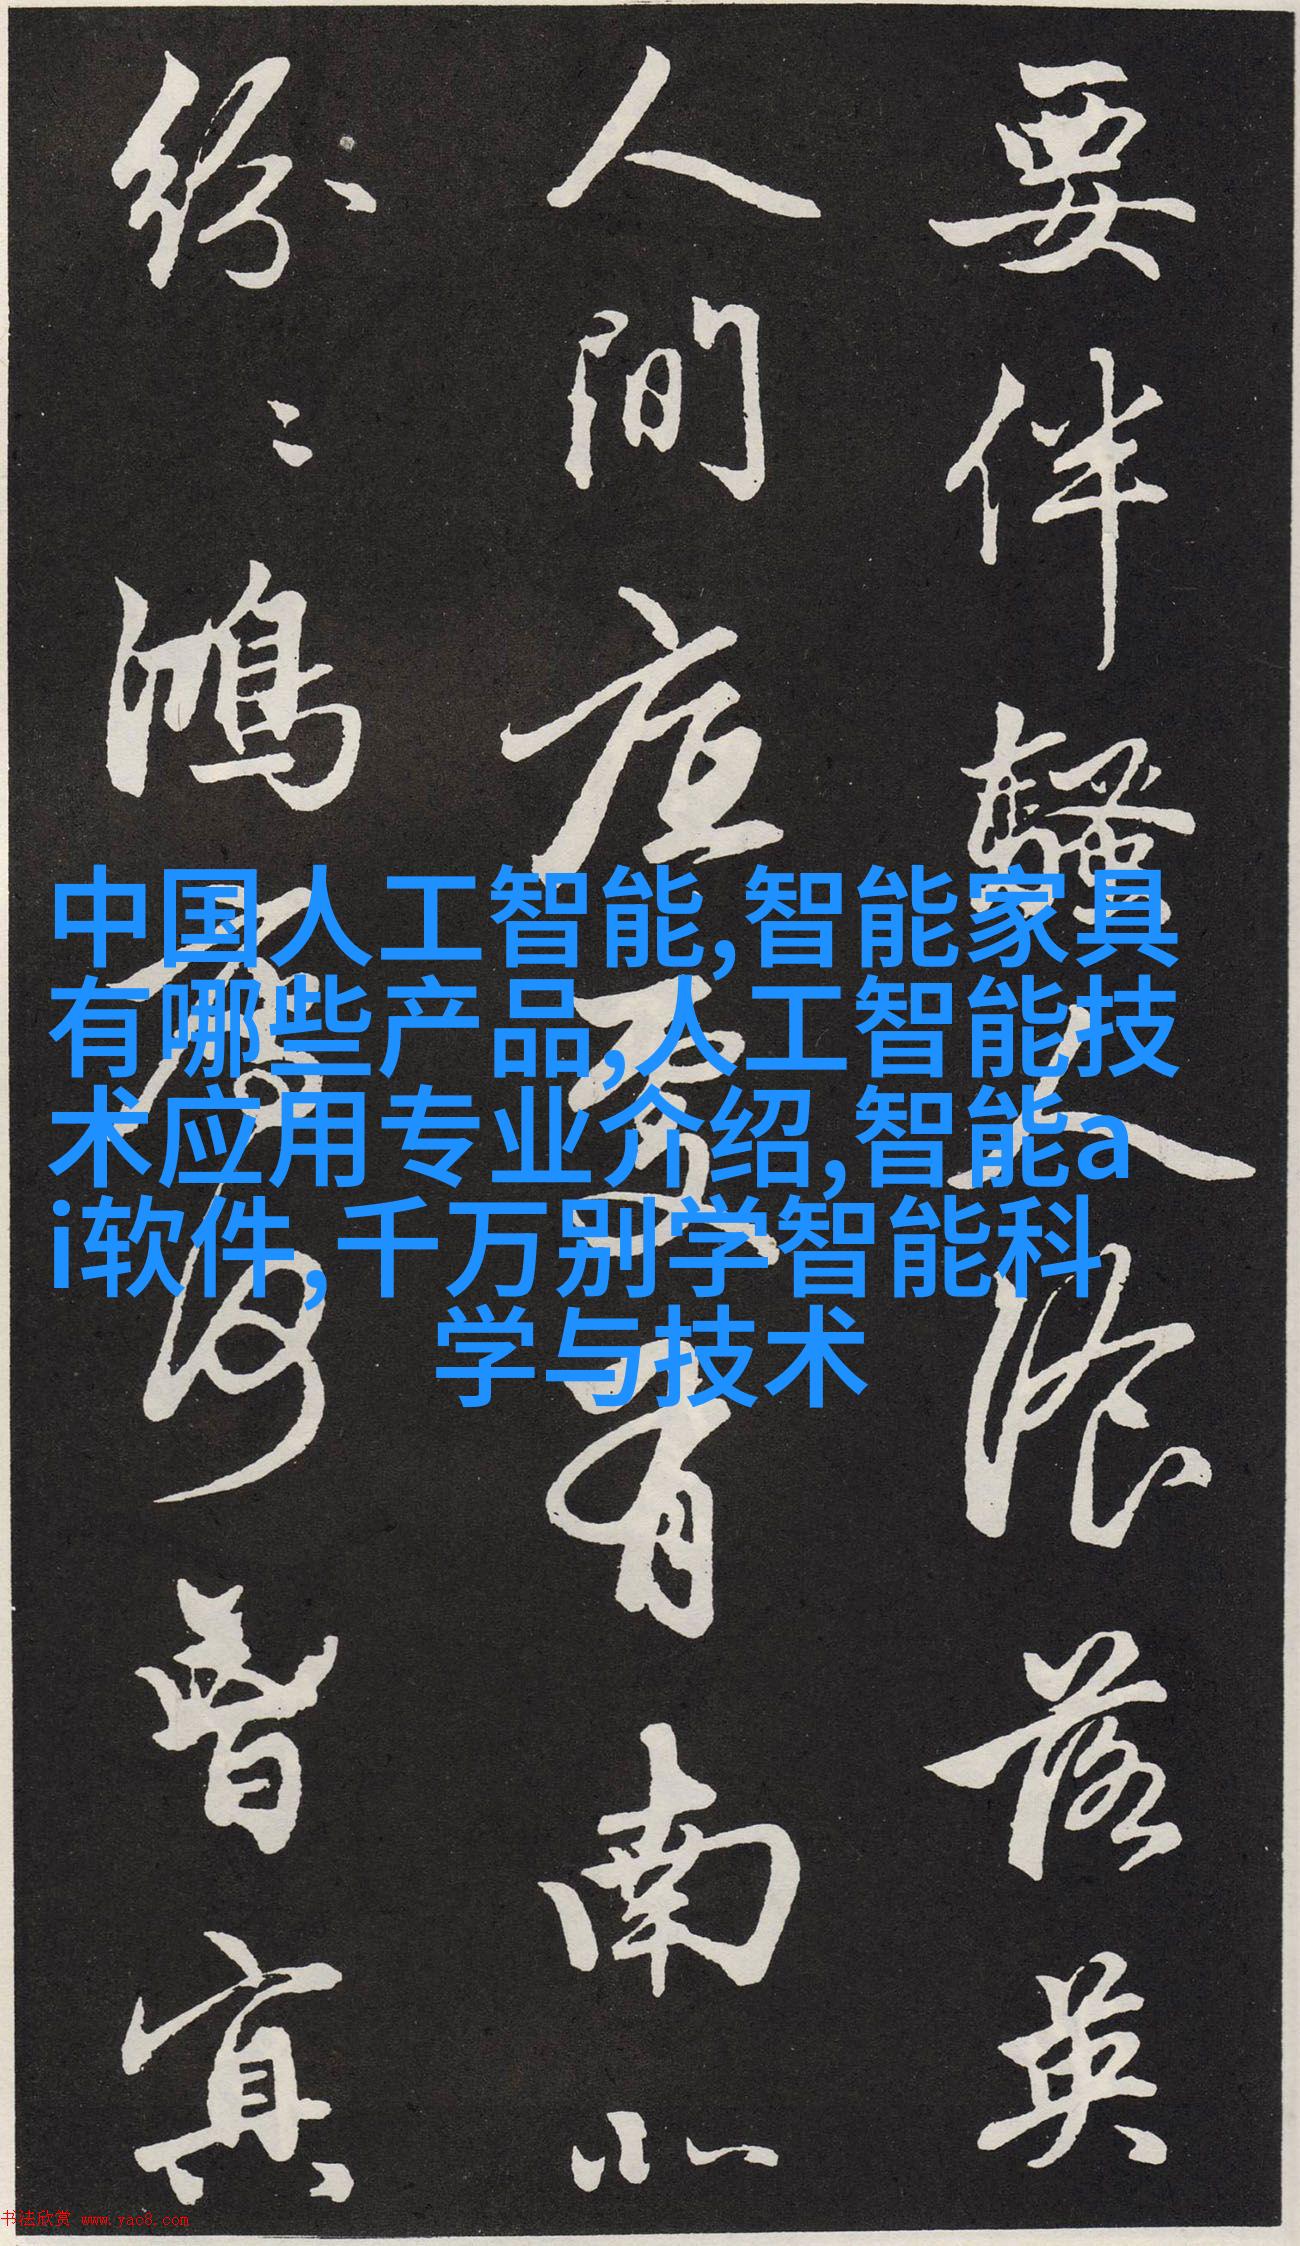 要伴騷人湌落英
人間底處有南北
紛〻鴻雁何曾冥
中国人工智能,智能家具
有哪些产品,人工智能技
术应用专业介绍,智能a
i软件, 千万别学智能科
学与技术
书法欣赏 www.yac8.com